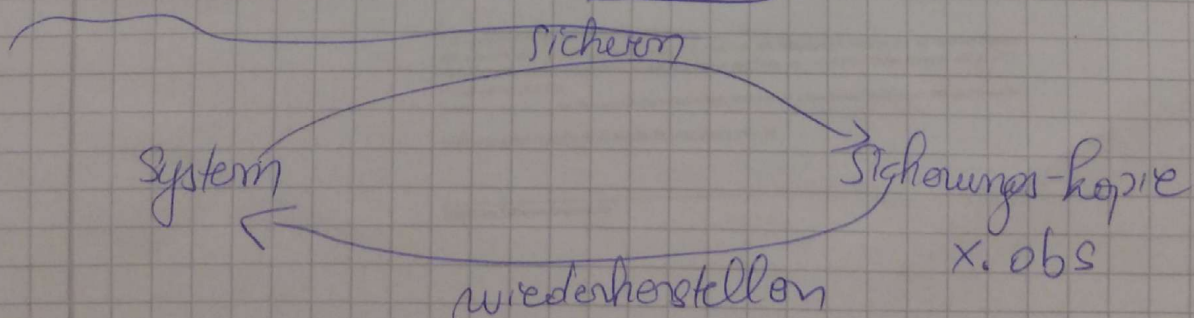 sichern
System
Sicherungs-kopie
x.obs
wiederherstellen